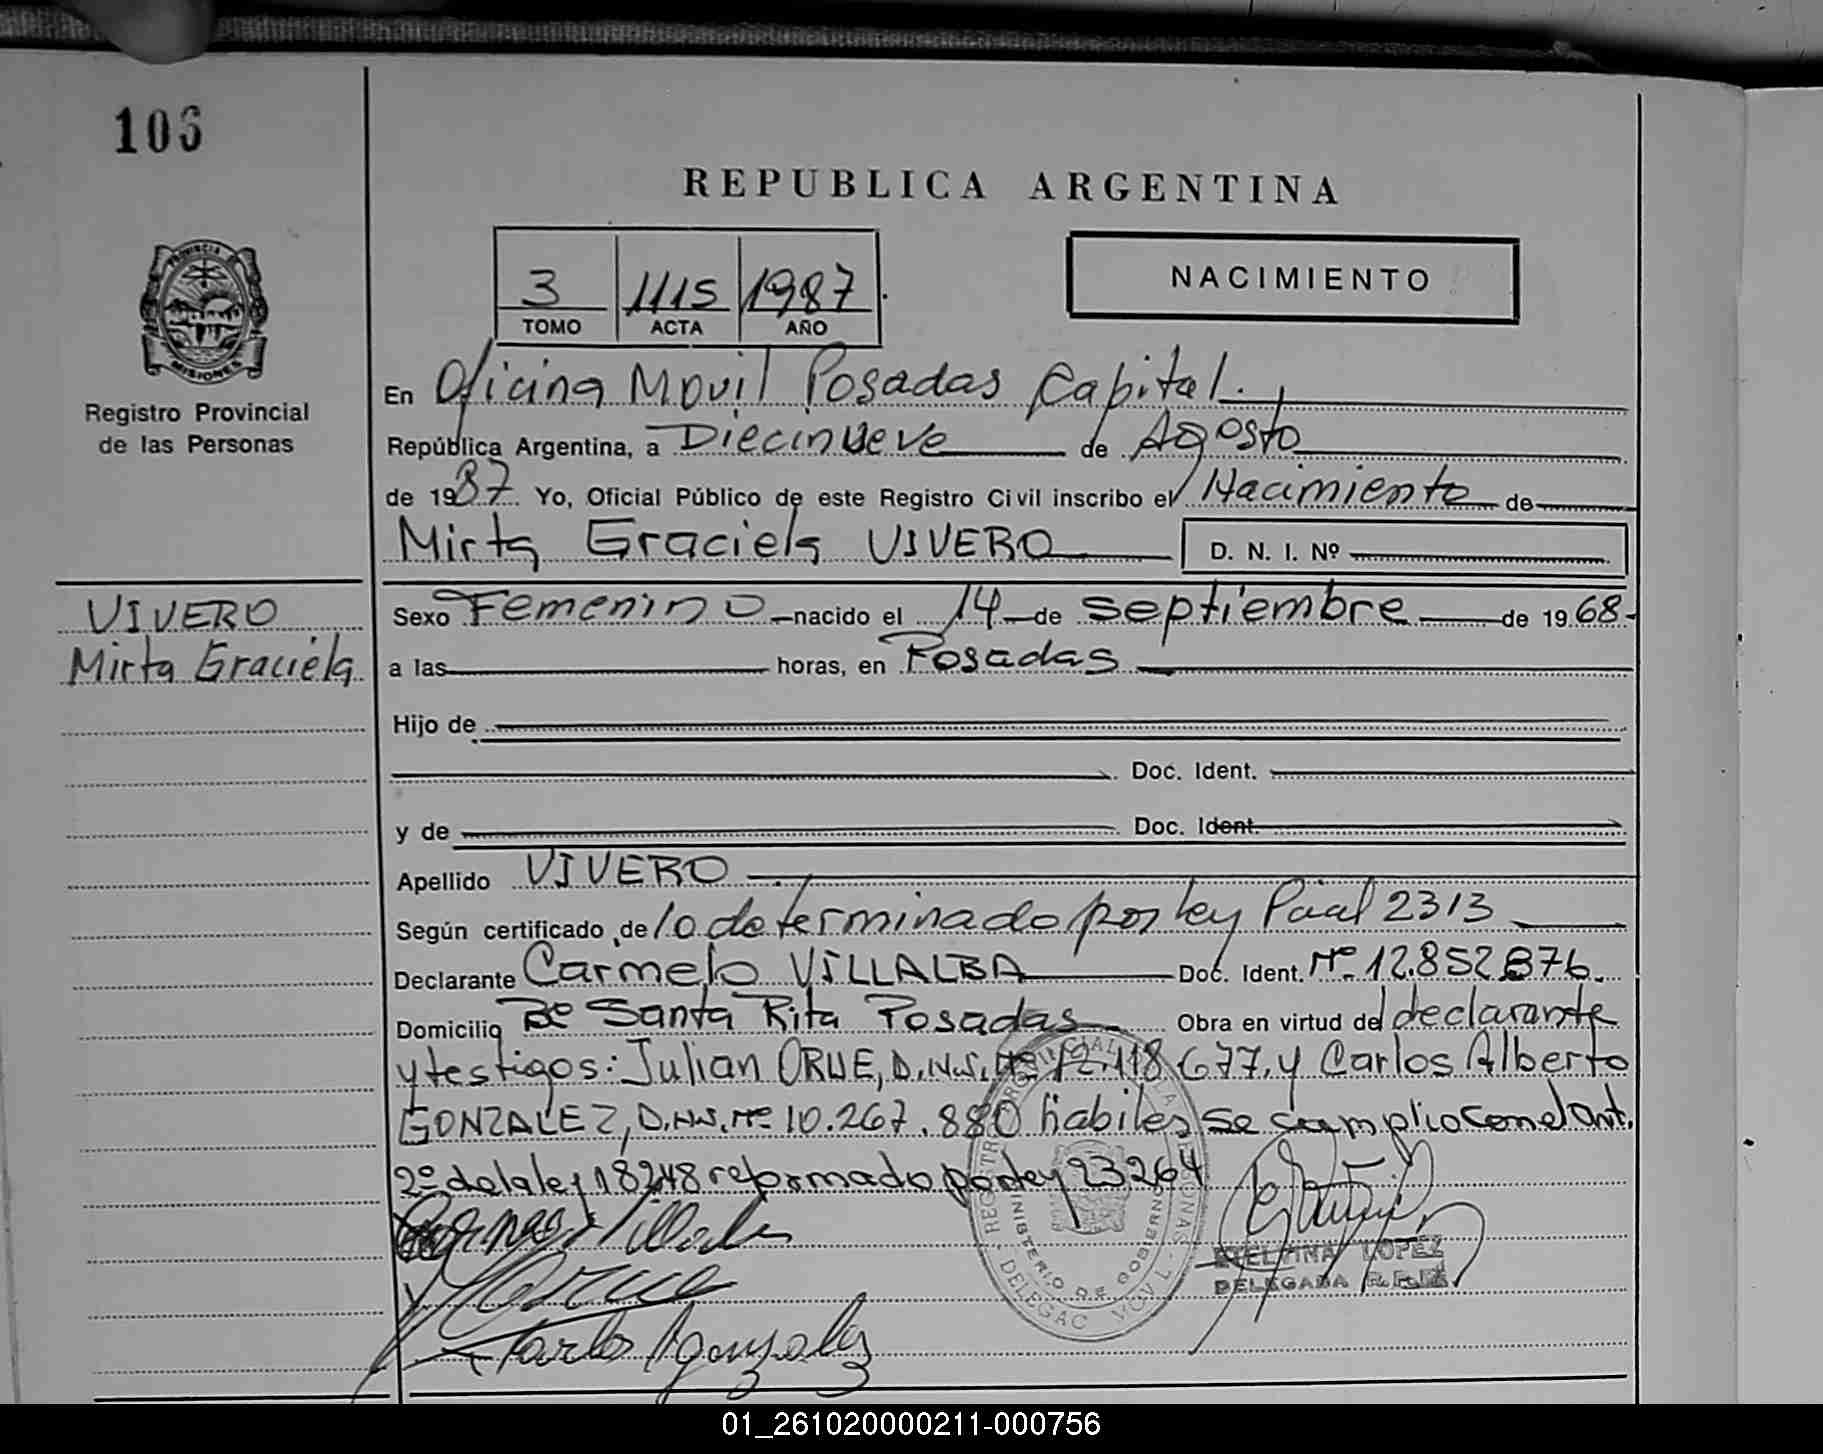 106
REPUBLICA ARGENTINA
3 1115 1987
TOMO ACTA AÑO
NACIMIENTO
PROVINCIA DE
MISIONES
Registro Provincial
de las Personas
En Oficina Movil Posadas Capital.
República Argentina, a Diecinueve de Agosto
de 1987 Yo, Oficial Público de este Registro Civil inscribo el Nacimiento de
Mirta Graciela VIVERO D. N. I. Nº
VIVERO
Mirta Graciela
Sexo Femenino nacido el 14 de septiembre de 1968
a las horas, en Posadas
Hijo de
Doc. Ident.
y de Doc. Ident.
Apellido VIVERO
Según certificado de lo determinado por ley Pcial 2313
Declarante Carmelo VILLALBA Doc. Ident. Nº 12.852.876.
Domicilio Bº Santa Rita Posadas Obra en virtud del declarante
y testigos: Julian ORUE, D.N.I. Nº 12.118.677. y Carlos Alberto
GONZALEZ, D.N.I. Nº 10.267.880 habiles se cumplio con el art.
2º de la ley 18248 reformado por ley 23264
REGISTRO PROVINCIAL DE LAS PERSONAS
MINISTERIO DE GOBIERNO
DELEGAC MOVIL
ETELVINA LOPEZ
DELEGADA R.P.P.
Carlos A gonzalez
01_261020000211-000756